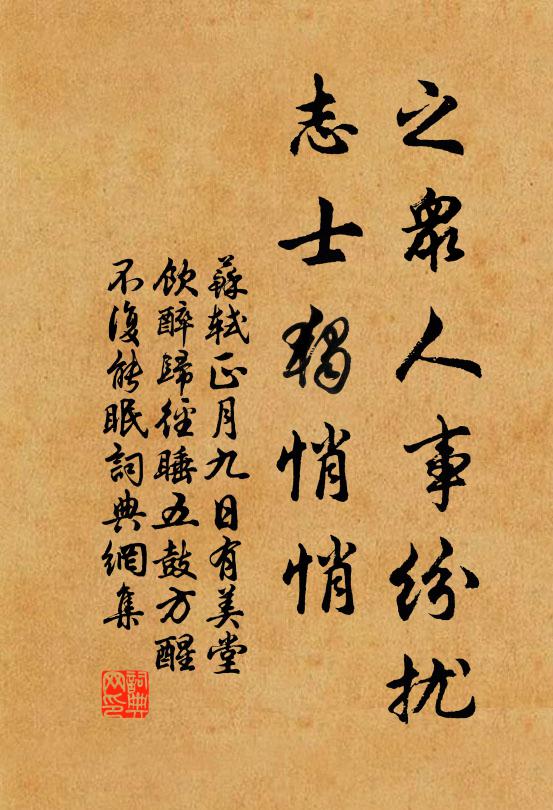 之衆人事纷扰
志士獨悄悄
蘇軾正月九日有美堂
飲醉歸徑睡五鼓方醒
不復能眠詞典網集
詞典
网印